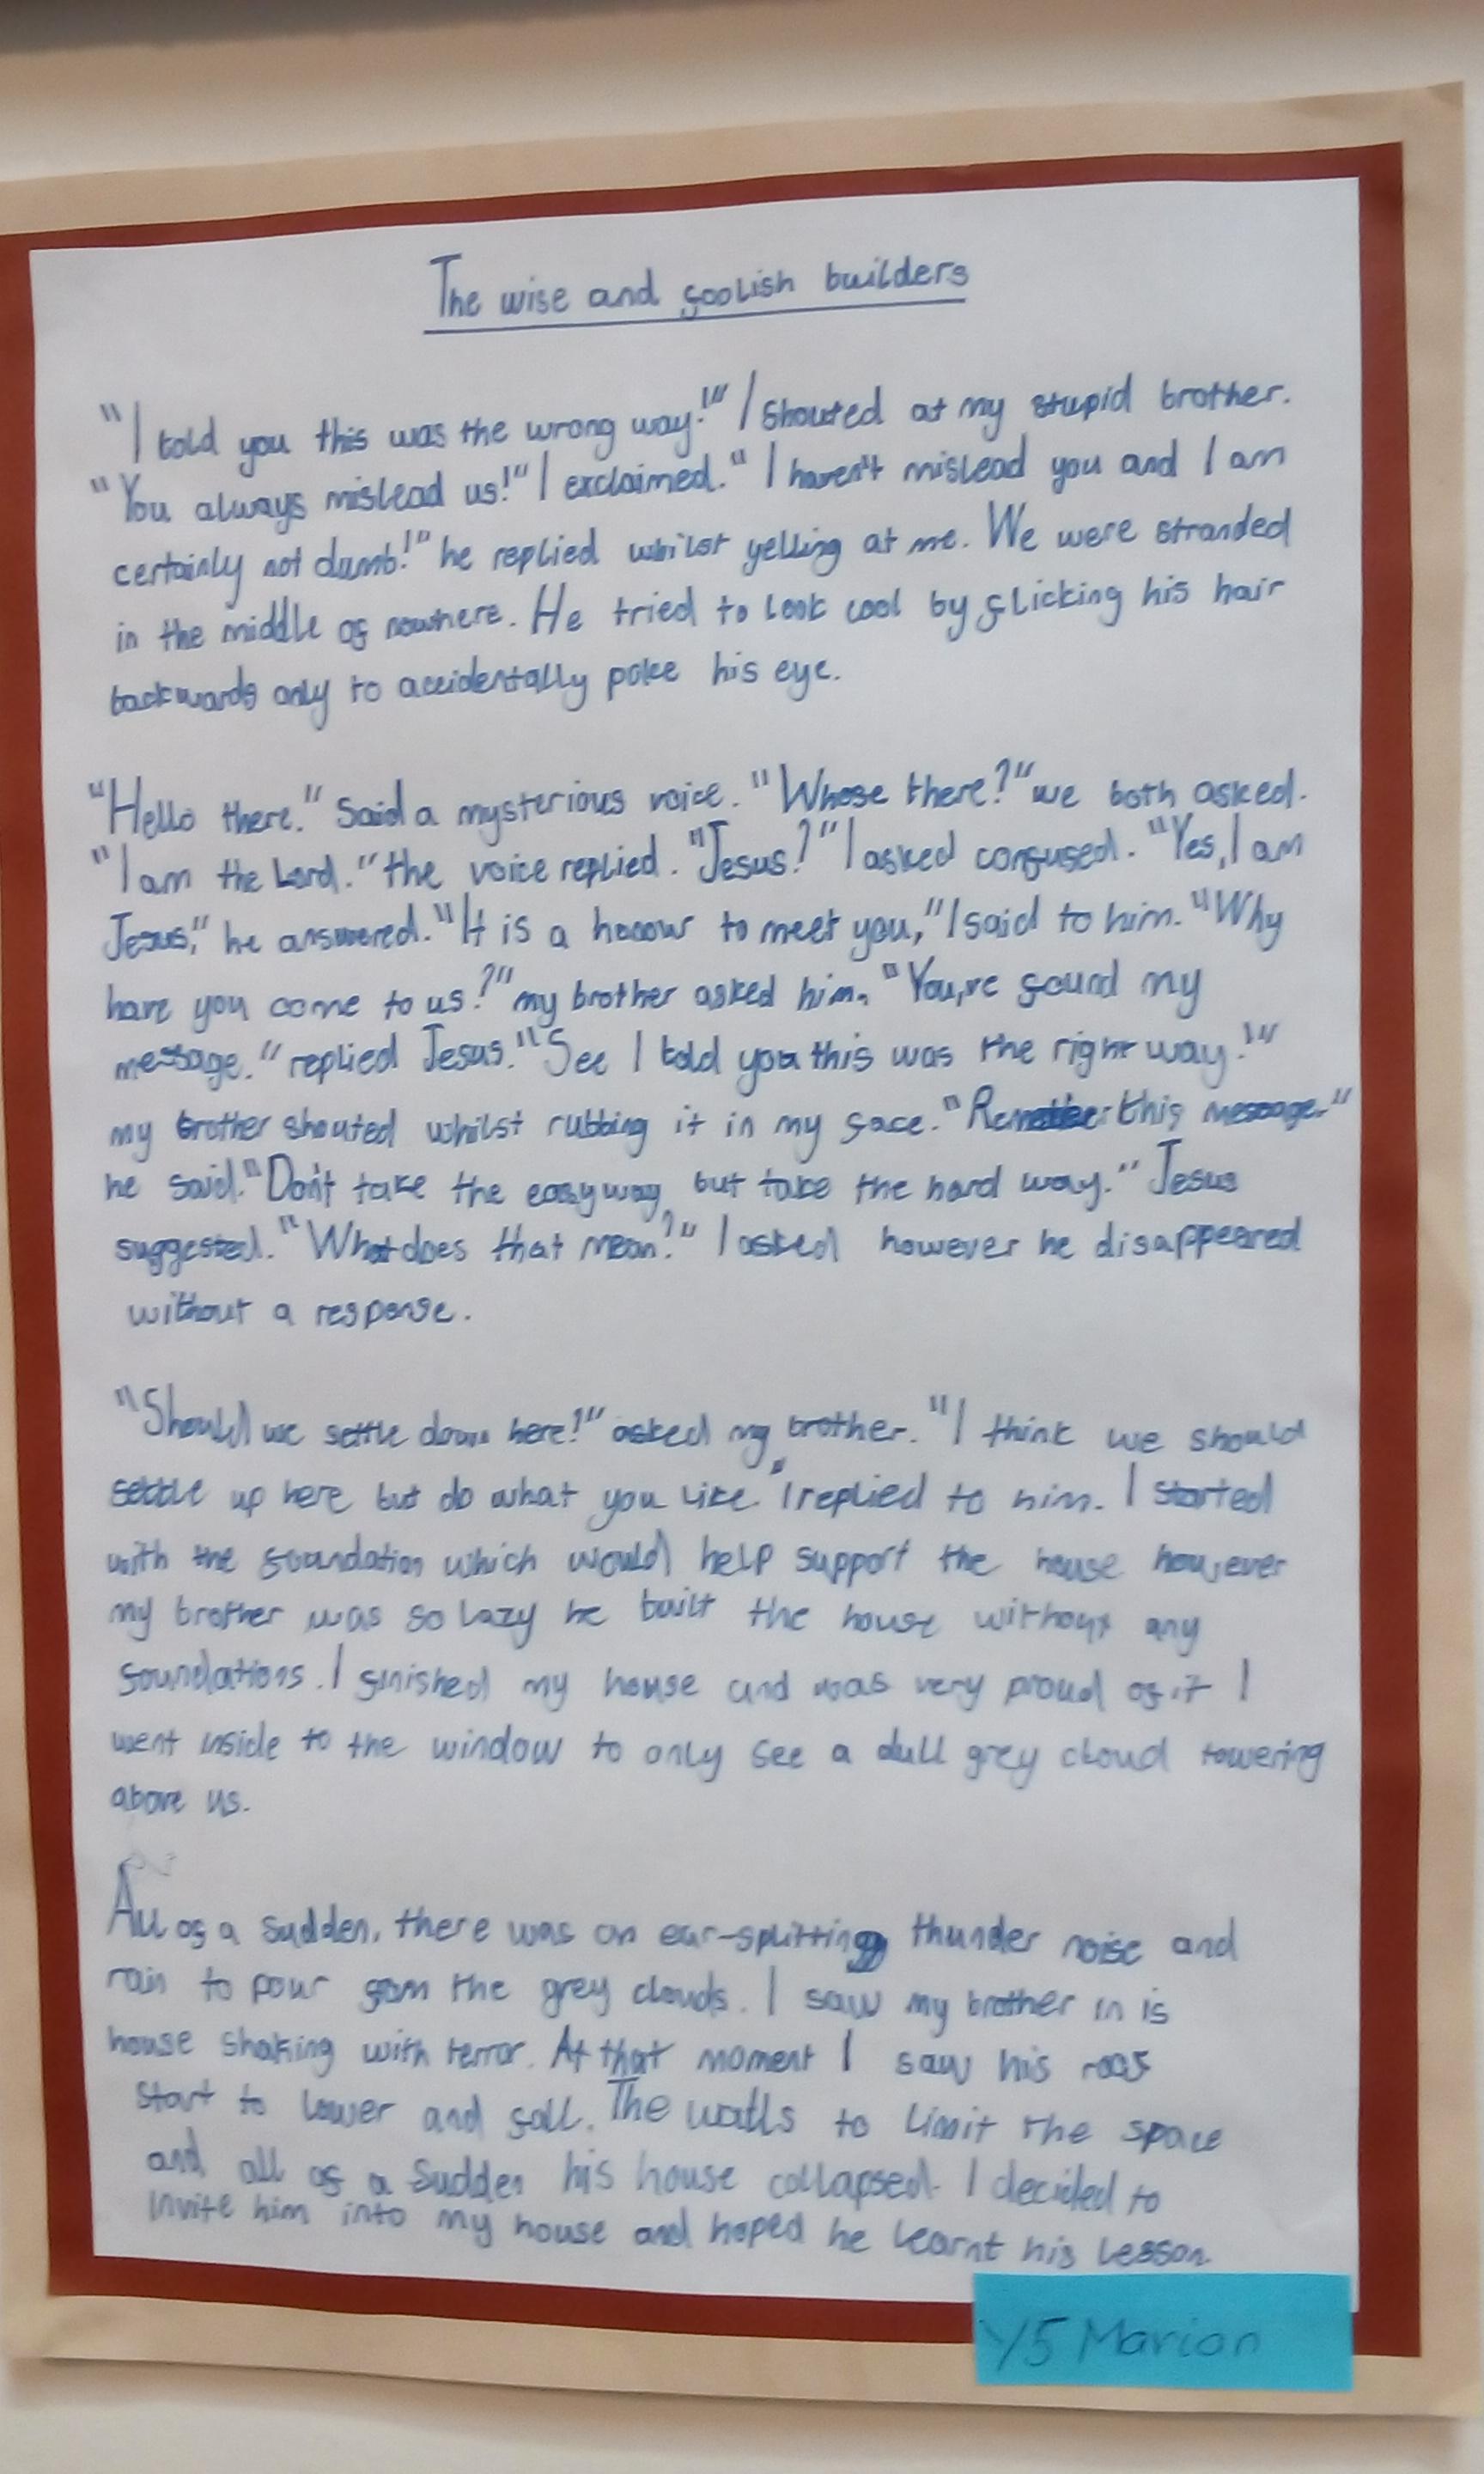 The wise and foolish builders
"I told you this was the wrong way!" I shouted at my stupid brother.
"You always mislead us!" I exclaimed. "I haven't mislead you and I am
certainly not dumb!" he replied whilst yelling at me. We were stranded
in the middle of nowhere. He tried to look cool by flicking his hair
backwards only to accidentally poke his eye.
"Hello there." Said a mysterious voice. "Whose there?" we both asked.
"I am the Lord." the voice replied. "Jesus?" I asked confused. "Yes, I am
Jesus," he answered. "It is a honour to meet you," I said to him. "Why
have you come to us?" my brother asked him. "You've found my
message." replied Jesus. "See I told you this was the right way!"
my brother shouted whilst rubbing it in my face. "Remember this message."
he said. "Don't take the easy way, but take the hard way." Jesus
suggested. "What does that mean?" I asked however he disappeared
without a response.
"Should we settle down here?" asked my brother. "I think we should
settle up here but do what you like." I replied to him. I started
with the foundation which would help support the house however
my brother was so lazy he built the house without any
foundations. I finished my house and was very proud of it I
went inside to the window to only see a dull grey cloud towering
above us.
All of a sudden, there was an ear-splitting thunder noise and
rain to pour from the grey clouds. I saw my brother in is
house shaking with terror. At that moment I saw his roof
start to lower and fall. The walls to limit the space
and all of a sudden his house collapsed. I decided to
invite him into my house and hoped he learnt his lesson.
Y5 Marian